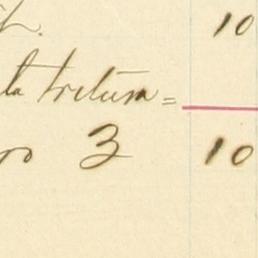 10
la tritura=
ro 3 10